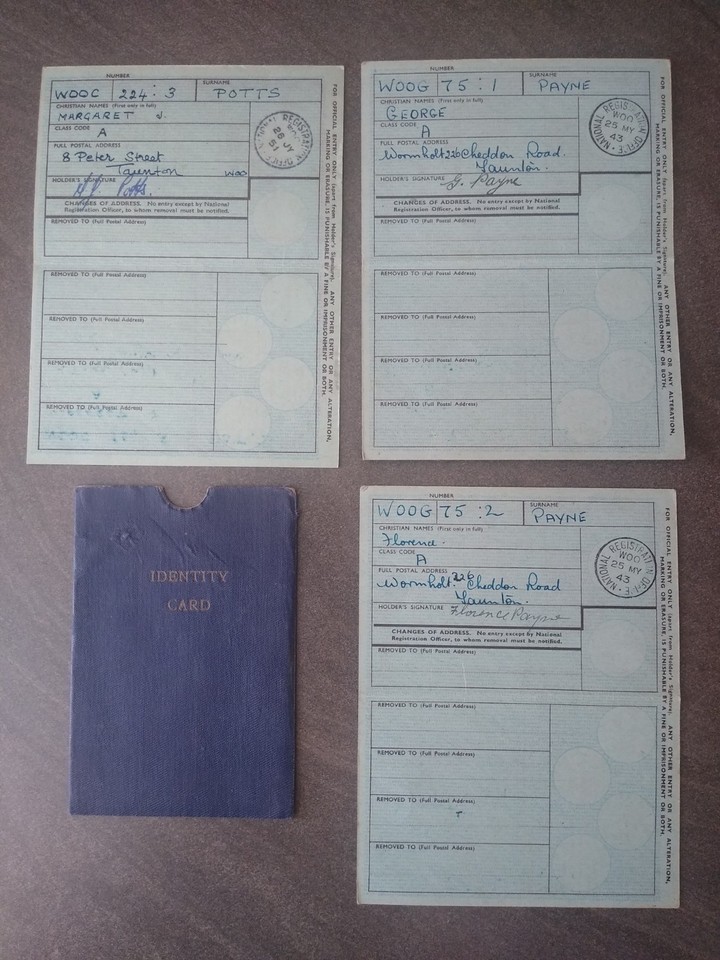 NUMBER SURNAME
WOOC 224 : 3 POTTS
CHRISTIAN NAMES (First only in full)
MARGARET J.
CLASS CODE
A
FULL POSTAL ADDRESS
8 Peter Street
Taunton WOO
HOLDER'S SIGNATURE
M.J. Potts.
CHANGES OF ADDRESS. No entry except by National
Registration Officer, to whom removal must be notified.
REMOVED TO (Full Postal Address)
REMOVED TO (Full Postal Address)
REMOVED TO (Full Postal Address)
REMOVED TO (Full Postal Address)
REMOVED TO (Full Postal Address)
NATIONAL REGISTRATION OFFICE
WOO
26 JY
51
FOR OFFICIAL ENTRY ONLY (apart from Holder's Signature). ANY OTHER ENTRY OR ANY ALTERATION,
MARKING OR ERASURE, IS PUNISHABLE BY A FINE OR IMPRISONMENT OR BOTH.
NUMBER SURNAME
WOOG 75 : 1 PAYNE
CHRISTIAN NAMES (First only in full)
GEORGE
CLASS CODE
A
FULL POSTAL ADDRESS
Wormholt 226 Cheddon Road.
Taunton.
HOLDER'S SIGNATURE
G. Payne
CHANGES OF ADDRESS. No entry except by National
Registration Officer, to whom removal must be notified.
REMOVED TO (Full Postal Address)
REMOVED TO (Full Postal Address)
REMOVED TO (Full Postal Address)
REMOVED TO (Full Postal Address)
REMOVED TO (Full Postal Address)
NATIONAL REGISTRATION OFFICE
WOO
25 MY
43
FOR OFFICIAL ENTRY ONLY (apart from Holder's Signature). ANY OTHER ENTRY OR ANY ALTERATION,
MARKING OR ERASURE, IS PUNISHABLE BY A FINE OR IMPRISONMENT OR BOTH.
IDENTITY
CARD
NUMBER SURNAME
WOOG 75 : 2 PAYNE
CHRISTIAN NAMES (First only in full)
Florence.
CLASS CODE
A
FULL POSTAL ADDRESS
Wormholt. 226 Cheddon Road
Taunton.
HOLDER'S SIGNATURE
Florence Payne
CHANGES OF ADDRESS. No entry except by National
Registration Officer, to whom removal must be notified.
REMOVED TO (Full Postal Address)
REMOVED TO (Full Postal Address)
REMOVED TO (Full Postal Address)
REMOVED TO (Full Postal Address)
REMOVED TO (Full Postal Address)
NATIONAL REGISTRATION OFFICE
WOO
25 MY
43
FOR OFFICIAL ENTRY ONLY (apart from Holder's Signature). ANY OTHER ENTRY OR ANY ALTERATION,
MARKING OR ERASURE, IS PUNISHABLE BY A FINE OR IMPRISONMENT OR BOTH.